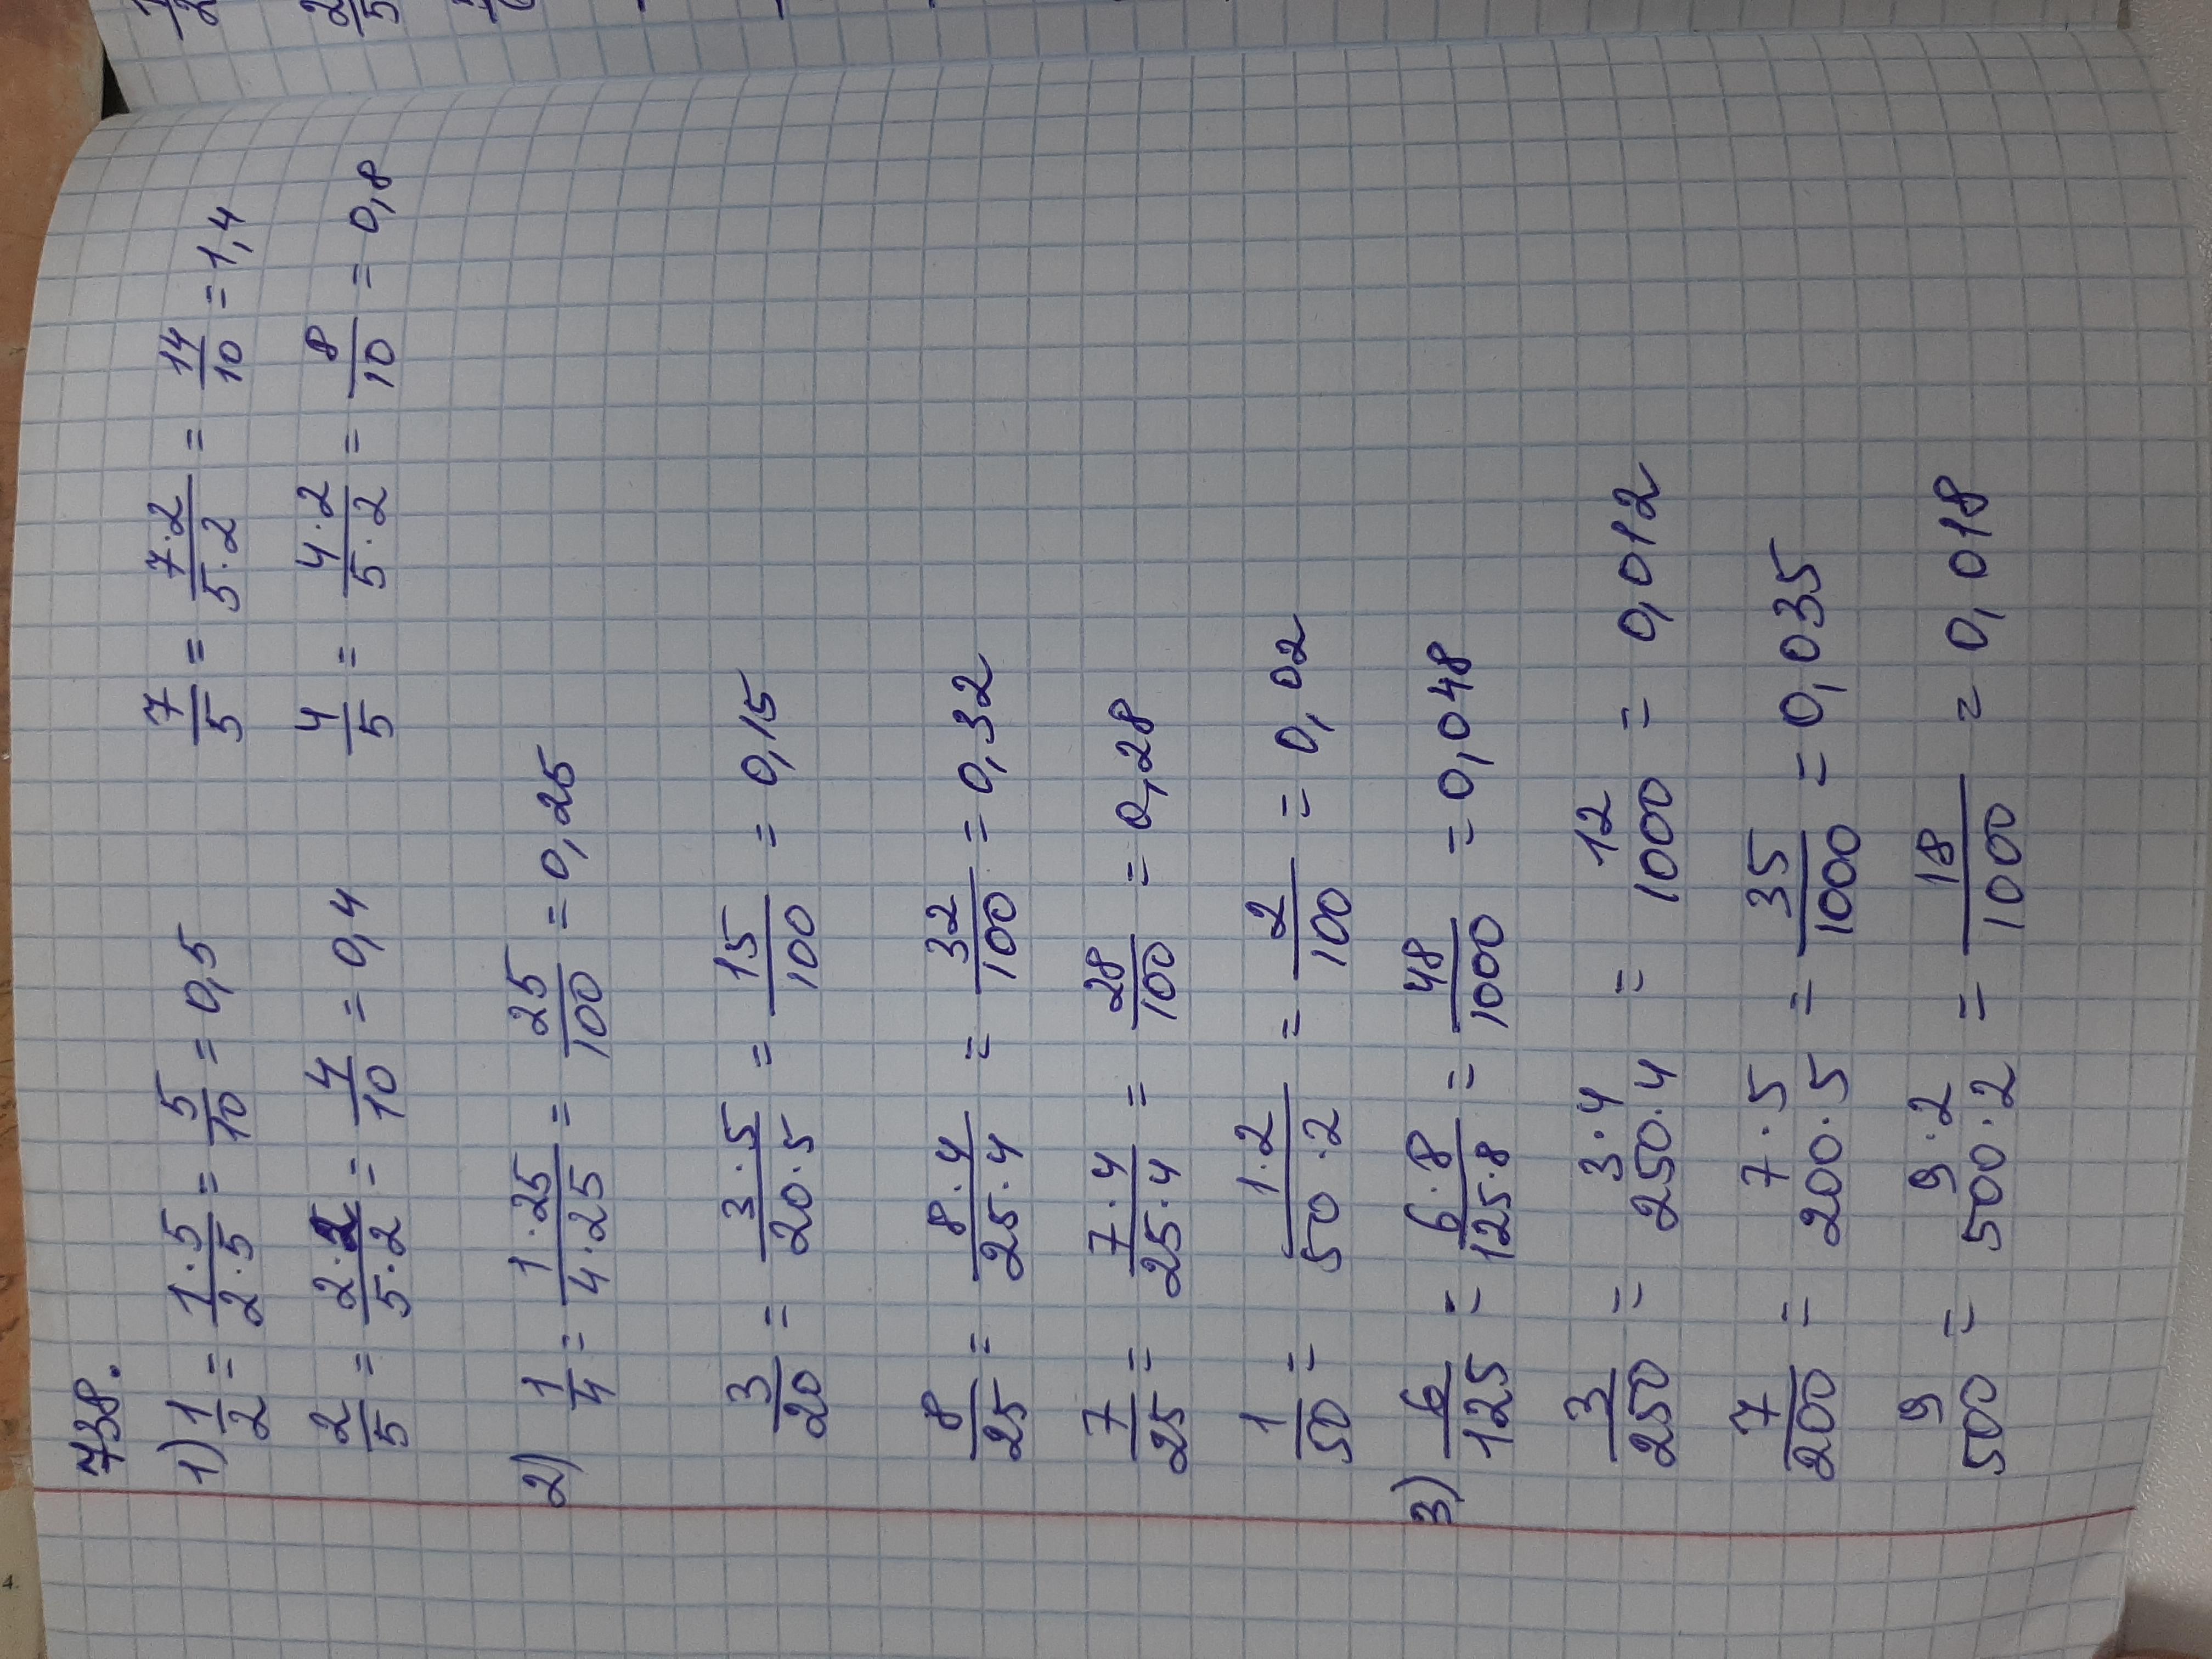 738.
1) 1/2 = 1·5/2·5 = 5/10 = 0,5 7/5 = 7·2/5·2 = 14/10 = 1,4
2/5 = 2·2/5·2 = 4/10 = 0,4 4/5 = 4·2/5·2 = 8/10 = 0,8
2) 1/4 = 1·25/4·25 = 25/100 = 0,25
3/20 = 3·5/20·5 = 15/100 = 0,15
8/25 = 8·4/25·4 = 32/100 = 0,32
7/25 = 7·4/25·4 = 28/100 = 0,28
1/50 = 1·2/50·2 = 2/100 = 0,02
3) 6/125 = 6·8/125·8 = 48/1000 = 0,048
3/250 = 3·4/250·4 = 12/1000 = 0,012
7/200 = 7·5/200·5 = 35/1000 = 0,035
9/500 = 9·2/500·2 = 18/1000 = 0,018